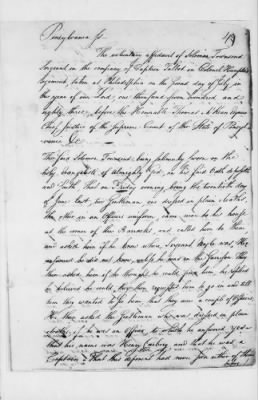 Pennsylvania ss.
49
The voluntary affidavit of Solomon Townsend
Sergeant in the company of Captain Talbot in Colonel Humpton's
Regiment, taken at Philadelphia on the second day of July in
the year of our Lord, one thousand seven hundred and
eighty three, before the Honorable Thomas McKean Esquire
Chief Justice of the Supreme Court of the State of Pennsyl
vania &c
The said Solomon Townsend being solemnly sworn on the
holy Evangelists of almighty God, on his said Oath deposeth
and saith that on Friday evening, being the twentieth day
of June last, two Gentlemen, one dressed in plain cloaths,
the other in an Officers uniform, came near to his house
at the corner of the Barracks, and called him to them
and asked him if he knew where Sergeant Nagle was, He
answered he did not know, unless he was in the Garrison they
then asked him if he thought he could find him, he replied
he believed he could, they then requested him to go in and tell
him they wanted to see him, that they were a couple of Officers,
He then asked the Gentleman who was dressed in plain
cloaths, if he was an Officer to which he answered yes
that his name was Henry Carbery and that he was a
Captain, That this deponent had never seen either of them